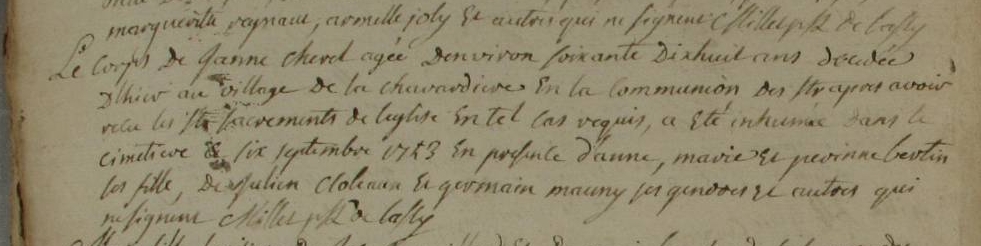 margueritte reynaut, armelle joly Et autres qui ne signent Millet ptr de lassy
Le Corps de Janne cherel agée denviron soixante Dixhuit ans decedée
Dhier au village de la chavardiere En la Communion des fts apres avoir
recu les sts sacrements de leglise En tel cas requis, a Eté inhumée dans le
cimetiere le six septembre 1723 En presence d'anne, marie Et perinne bertin
ses fille, de Julien Cloteaux Et germain mauny ses gendres Et autres qui
ne signent Millet ptr de lassy